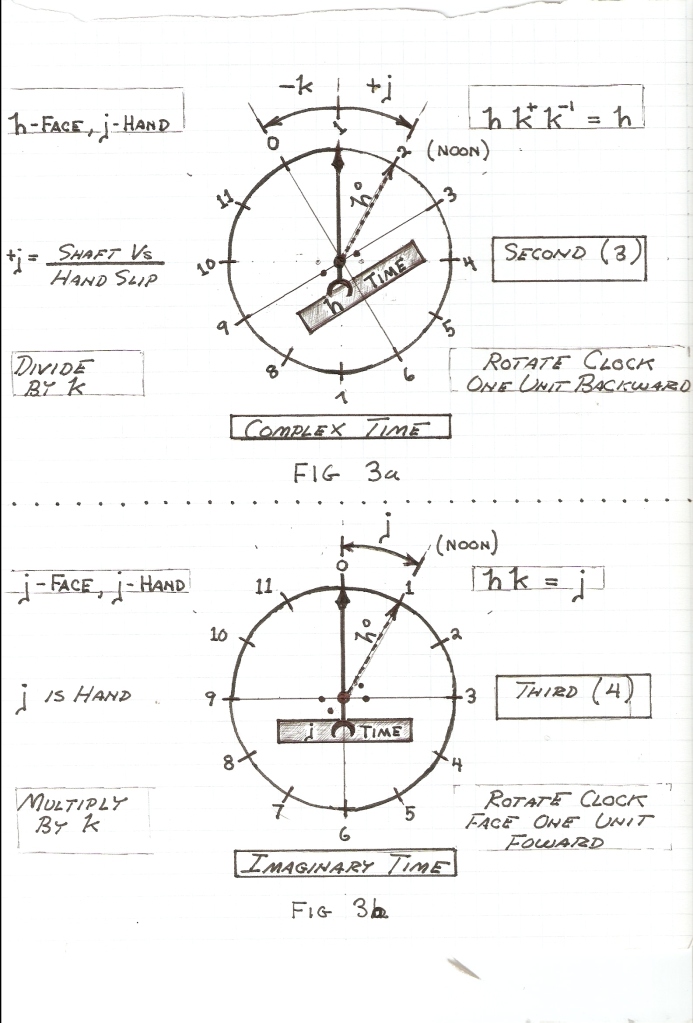 -k +j
h-FACE, j-HAND
h k⁺ k⁻¹ = h
0 1 2 (NOON)
11 3
h°
+j = SHAFT VS
HAND SLIP
10 4
SECOND (3)
h TIME
9 5
8 7 6
DIVIDE
BY k
ROTATE CLOCK
ONE UNIT BACKWARD
COMPLEX TIME
FIG 3a
j
(NOON)
j-FACE, j-HAND
0
11 1
h k = j
h°
10 2
j IS HAND
9 3
THIRD (4)
j TIME
8 4
7 6 5
MULTIPLY
BY k
ROTATE CLOCK
FACE ONE UNIT
FOWARD
IMAGINARY TIME
FIG 3b